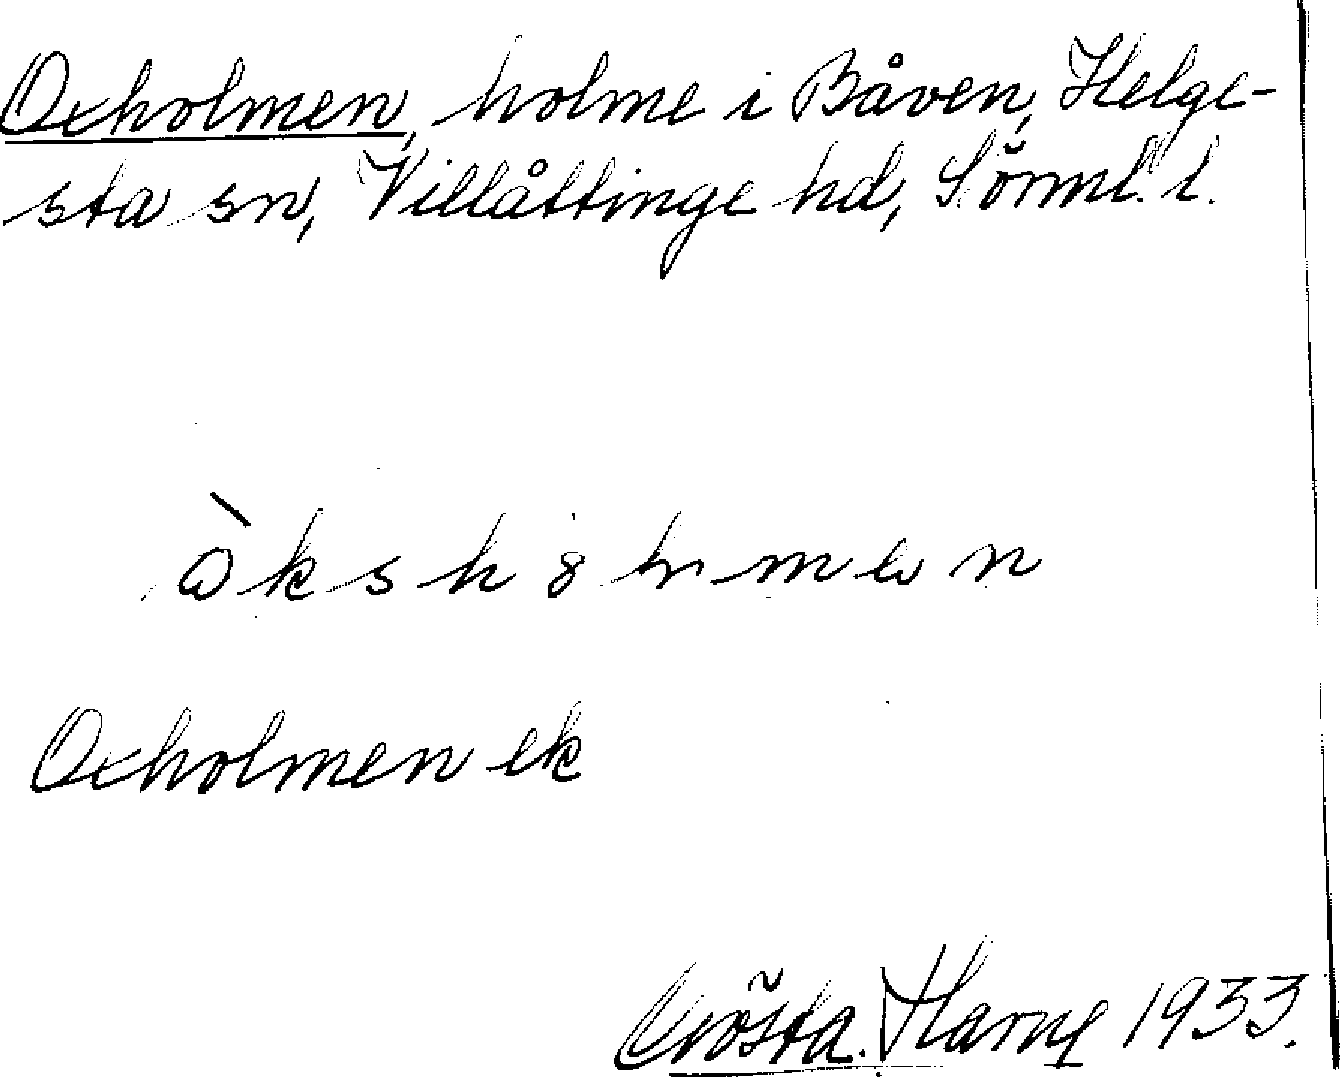 Oxholmen, holme i Båven, Helge-
sta sn, Villåttinge hd, Sörml. l.
Oxholmen ek
Gösta Harne 1933.